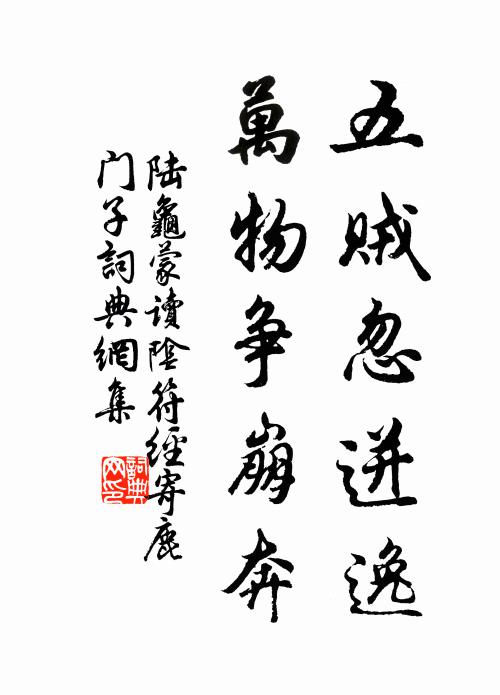 五贼忽迸逸
萬物争崩奔
陆龜蒙讀陰符經寄鹿
门子詞典網集
詞典网印